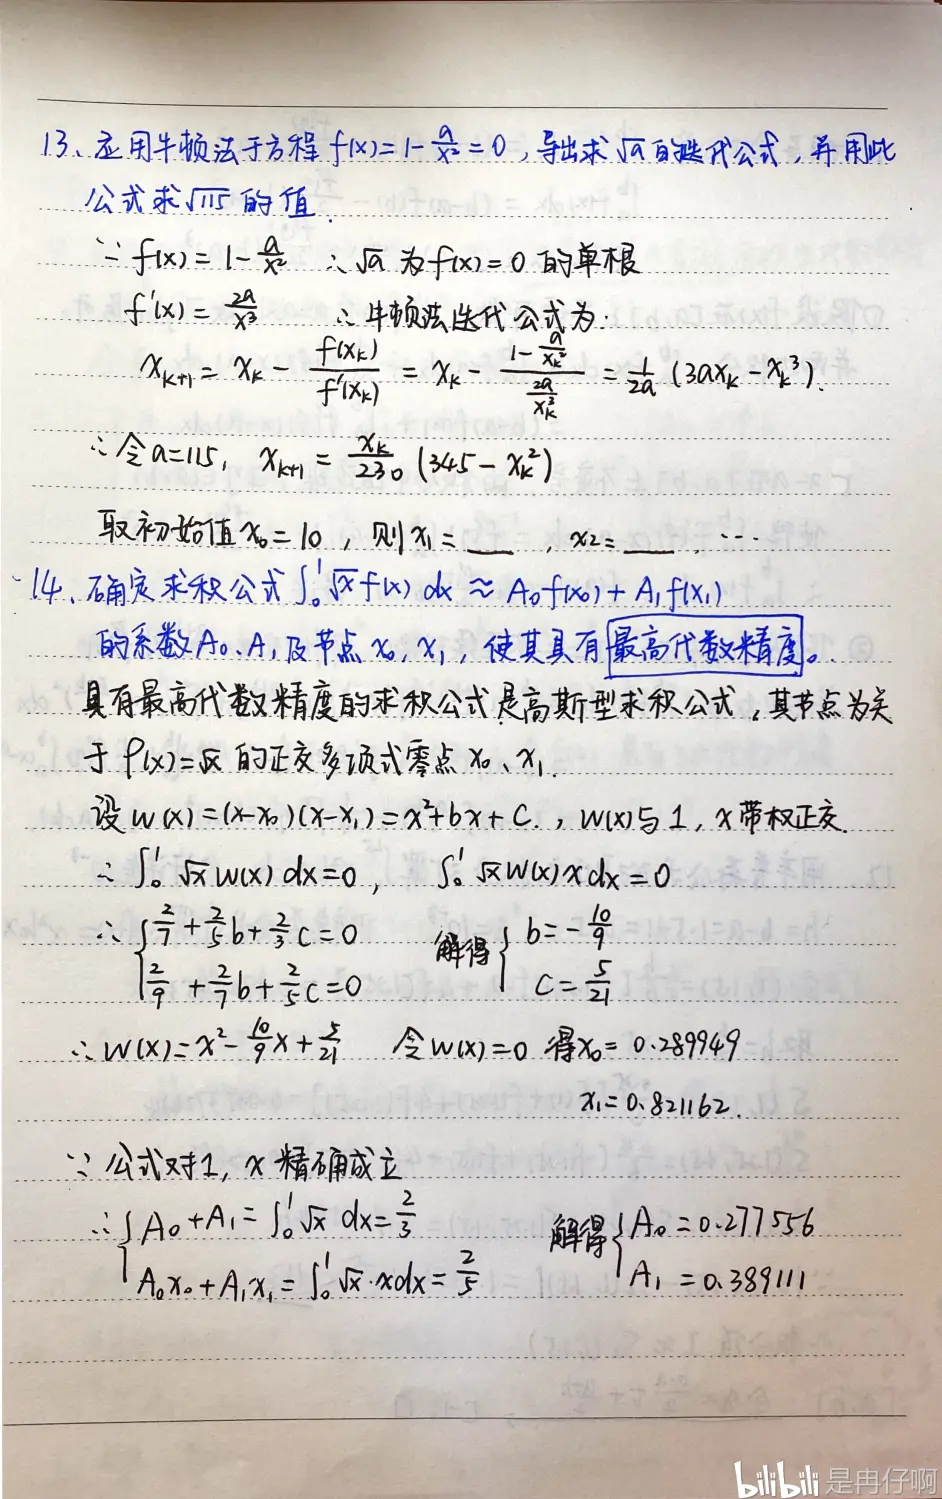 13、应用牛顿法于方程 f(x)=1-a/x²=0，导出求√a的迭代公式，并用此
公式求√115的值.
∵ f(x)=1-a/x² ∴√a为f(x)=0的单根
f'(x)=2a/x³ ∴牛顿法迭代公式为:
x_{k+1}=x_k-f(x_k)/f'(x_k)=x_k-(1-a/x_k²)/(2a/x_k³)=1/2a(3ax_k-x_k³).
∴令a=115, x_{k+1}=x_k/230(345-x_k²)
取初始值x₀=10，则x₁=__，x₂=__，…
14、确定求积公式∫₀¹√x f(x) dx≈A₀f(x₀)+A₁f(x₁)
的系数A₀、A₁及节点x₀，x₁，使其具有最高代数精度。
具有最高代数精度的求积公式是高斯型求积公式，其节点为关
于ρ(x)=√x的正交多项式零点x₀、x₁.
设w(x)=(x-x₀)(x-x₁)=x²+bx+c.，w(x)与1，x带权正交.
∴∫₀¹√x w(x) dx=0，∫₀¹√x w(x) x dx=0
∴{2/7+2/5b+2/3c=0 解得{b=-10/9
2/9+2/7b+2/5c=0 c=5/21
∴w(x)=x²-10/9x+5/21 令w(x)=0 得x₀=0.289949
x₁=0.821162.
∵公式对1，x精确成立
∴{A₀+A₁=∫₀¹√x dx=2/3 解得{A₀=0.277556
A₀x₀+A₁x₁=∫₀¹√x·xdx=2/5 A₁=0.389111
bilibili 是冉仔啊